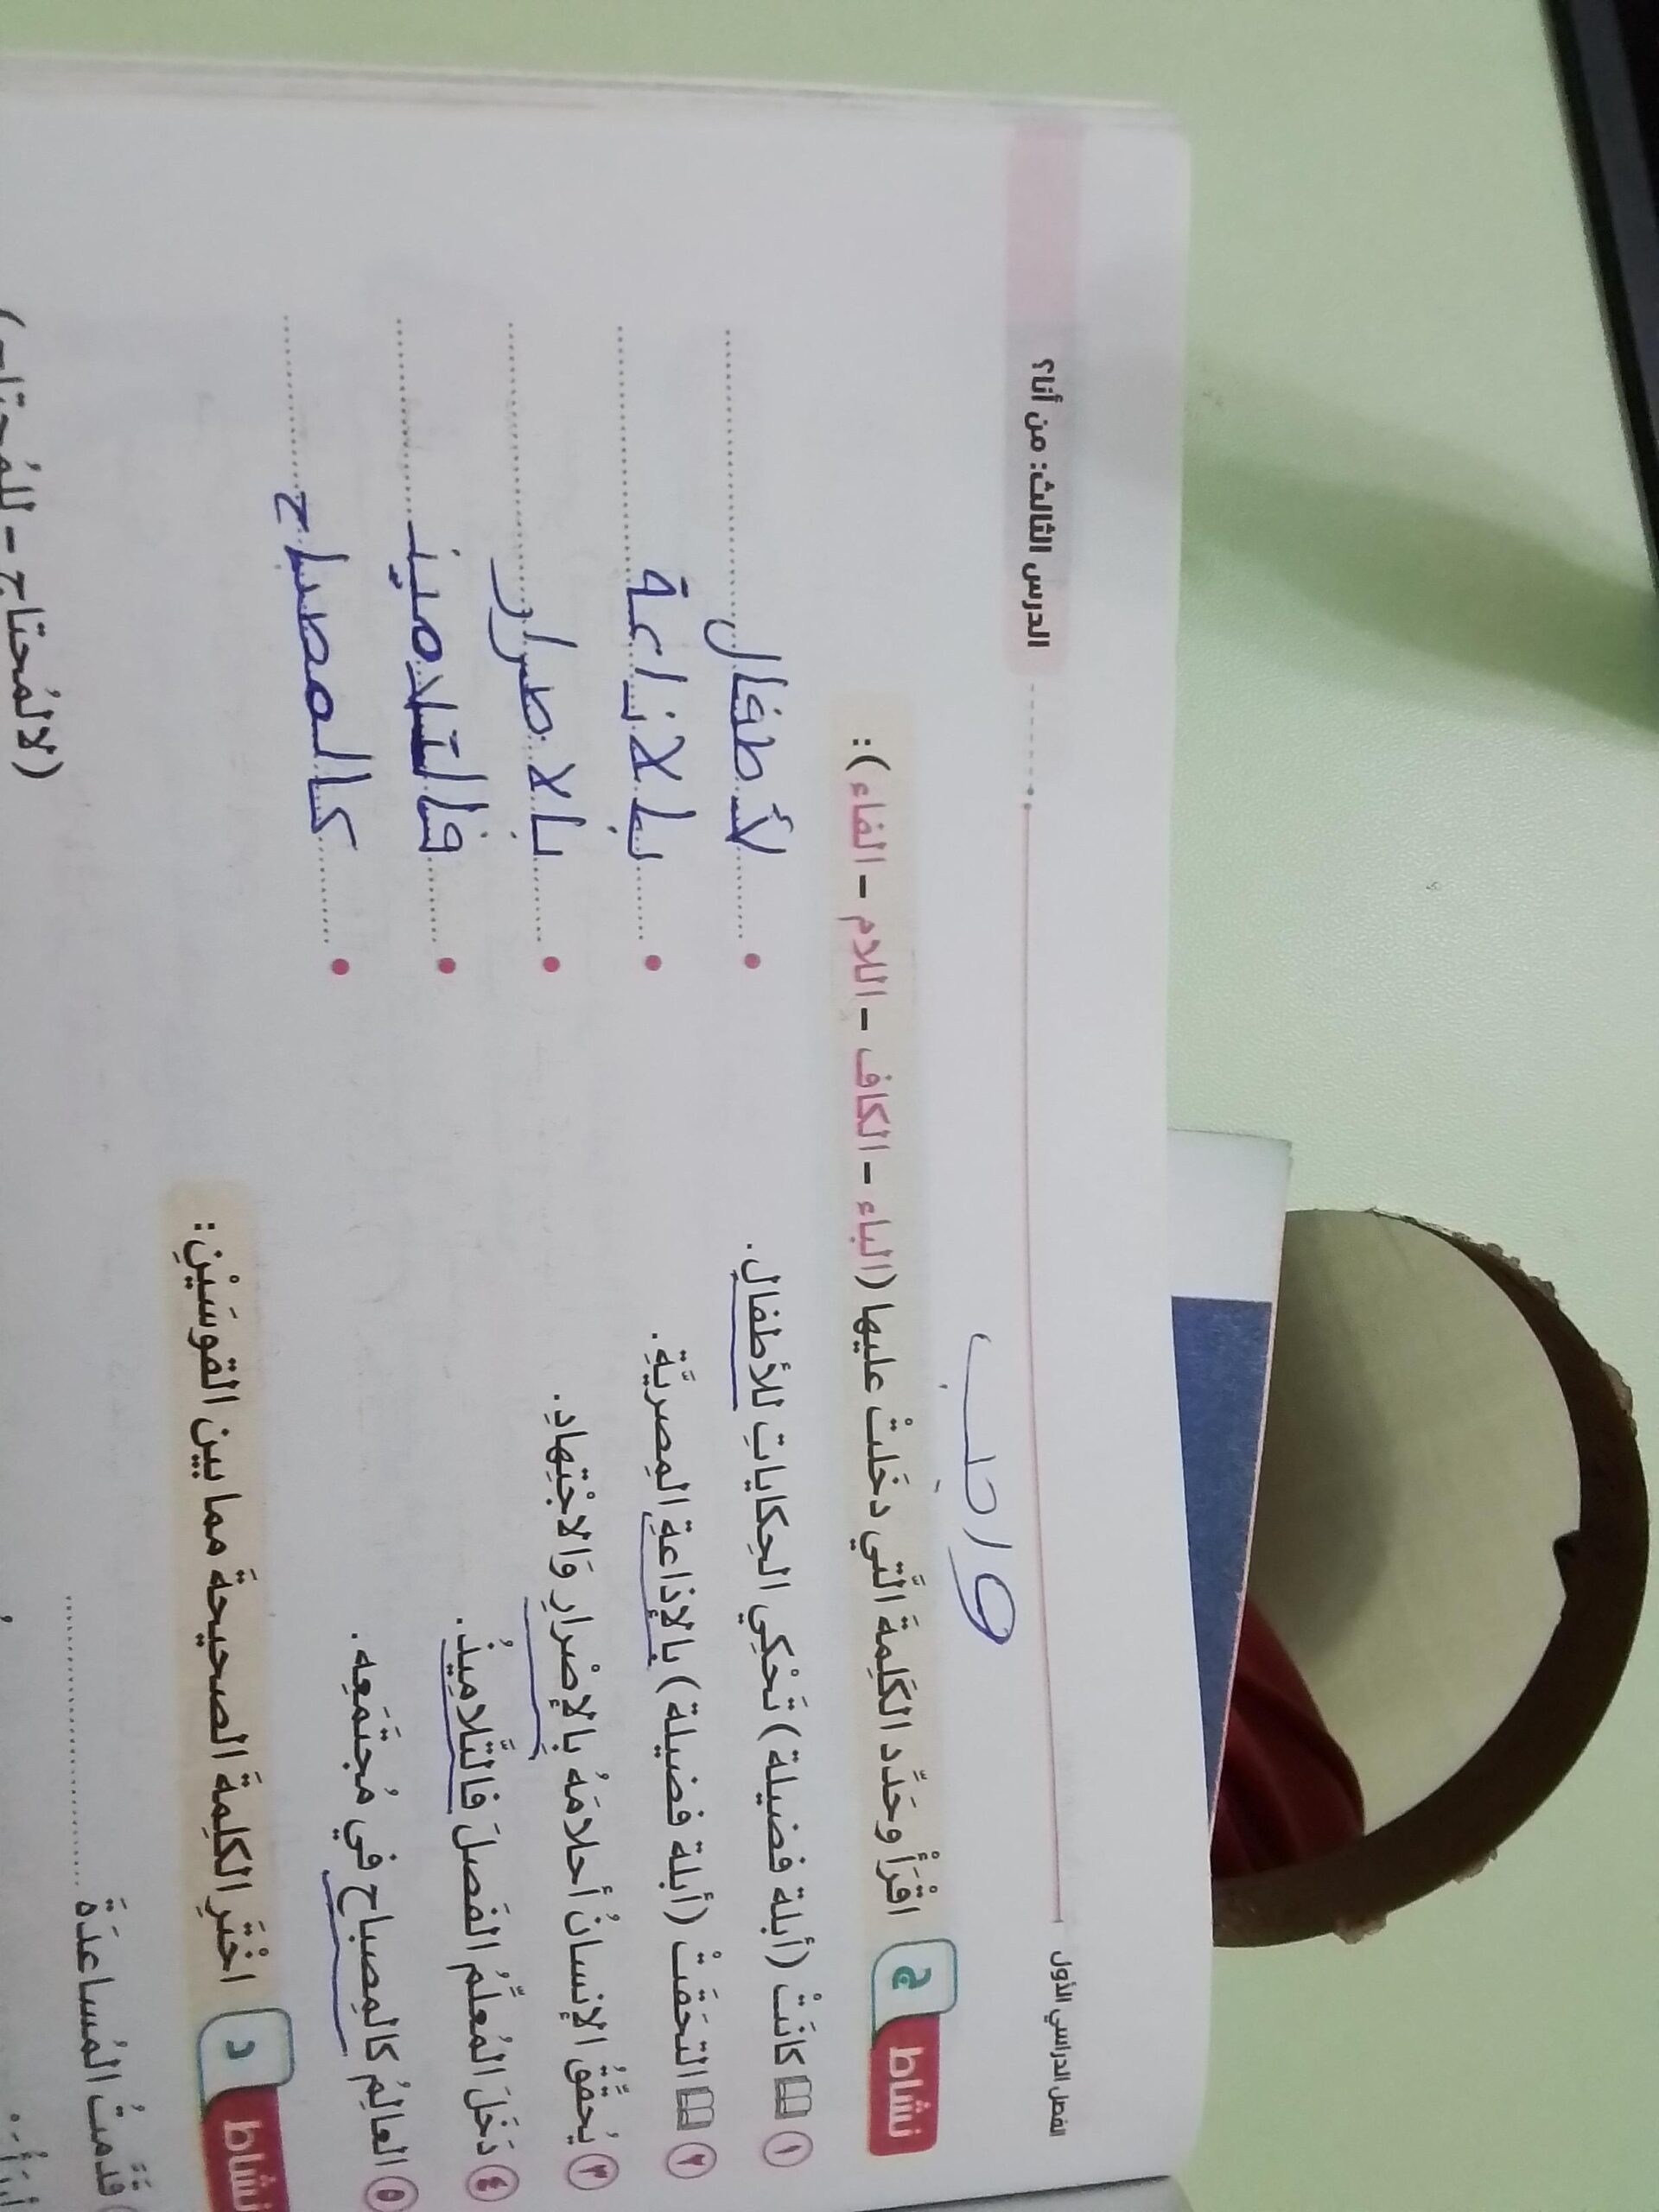 الفصل الدراسي الأول الدرس الثالث: من أنا؟
واجب
نشاط ج اقْرَأْ وحَدِّد الكَلِمةَ الَّتي دخَلتْ عليها (الباء - الكاف - اللام - الفاء):
١ كانَتْ (أبلة فضيلة) تَحْكِي الحِكاياتِ للأطفالِ. • لأطفال
٢ التحَقَتْ (أبلة فضيلة) بالإذاعةِ المِصريَّةِ. • بالاذاعة
٣ يُحقِّقُ الإنسانُ أحلامَهُ بالإصْرارِ وَالاجْتِهادِ. • بالاصرار
٤ دَخَلَ المُعلِّمُ الفَصلَ فالتَّلامِيذُ. • فالتلاميذ
٥ العالِمُ كالمِصباحِ في مُجتَمَعِه. • كالمصباح
نشاط د اخْتَرِ الكلِمةَ الصحيحةَ مما بين القوسَيْنِ:
قدَّمتُ المُساعدَةَ (لالمُحتاج - للمُحتاج)